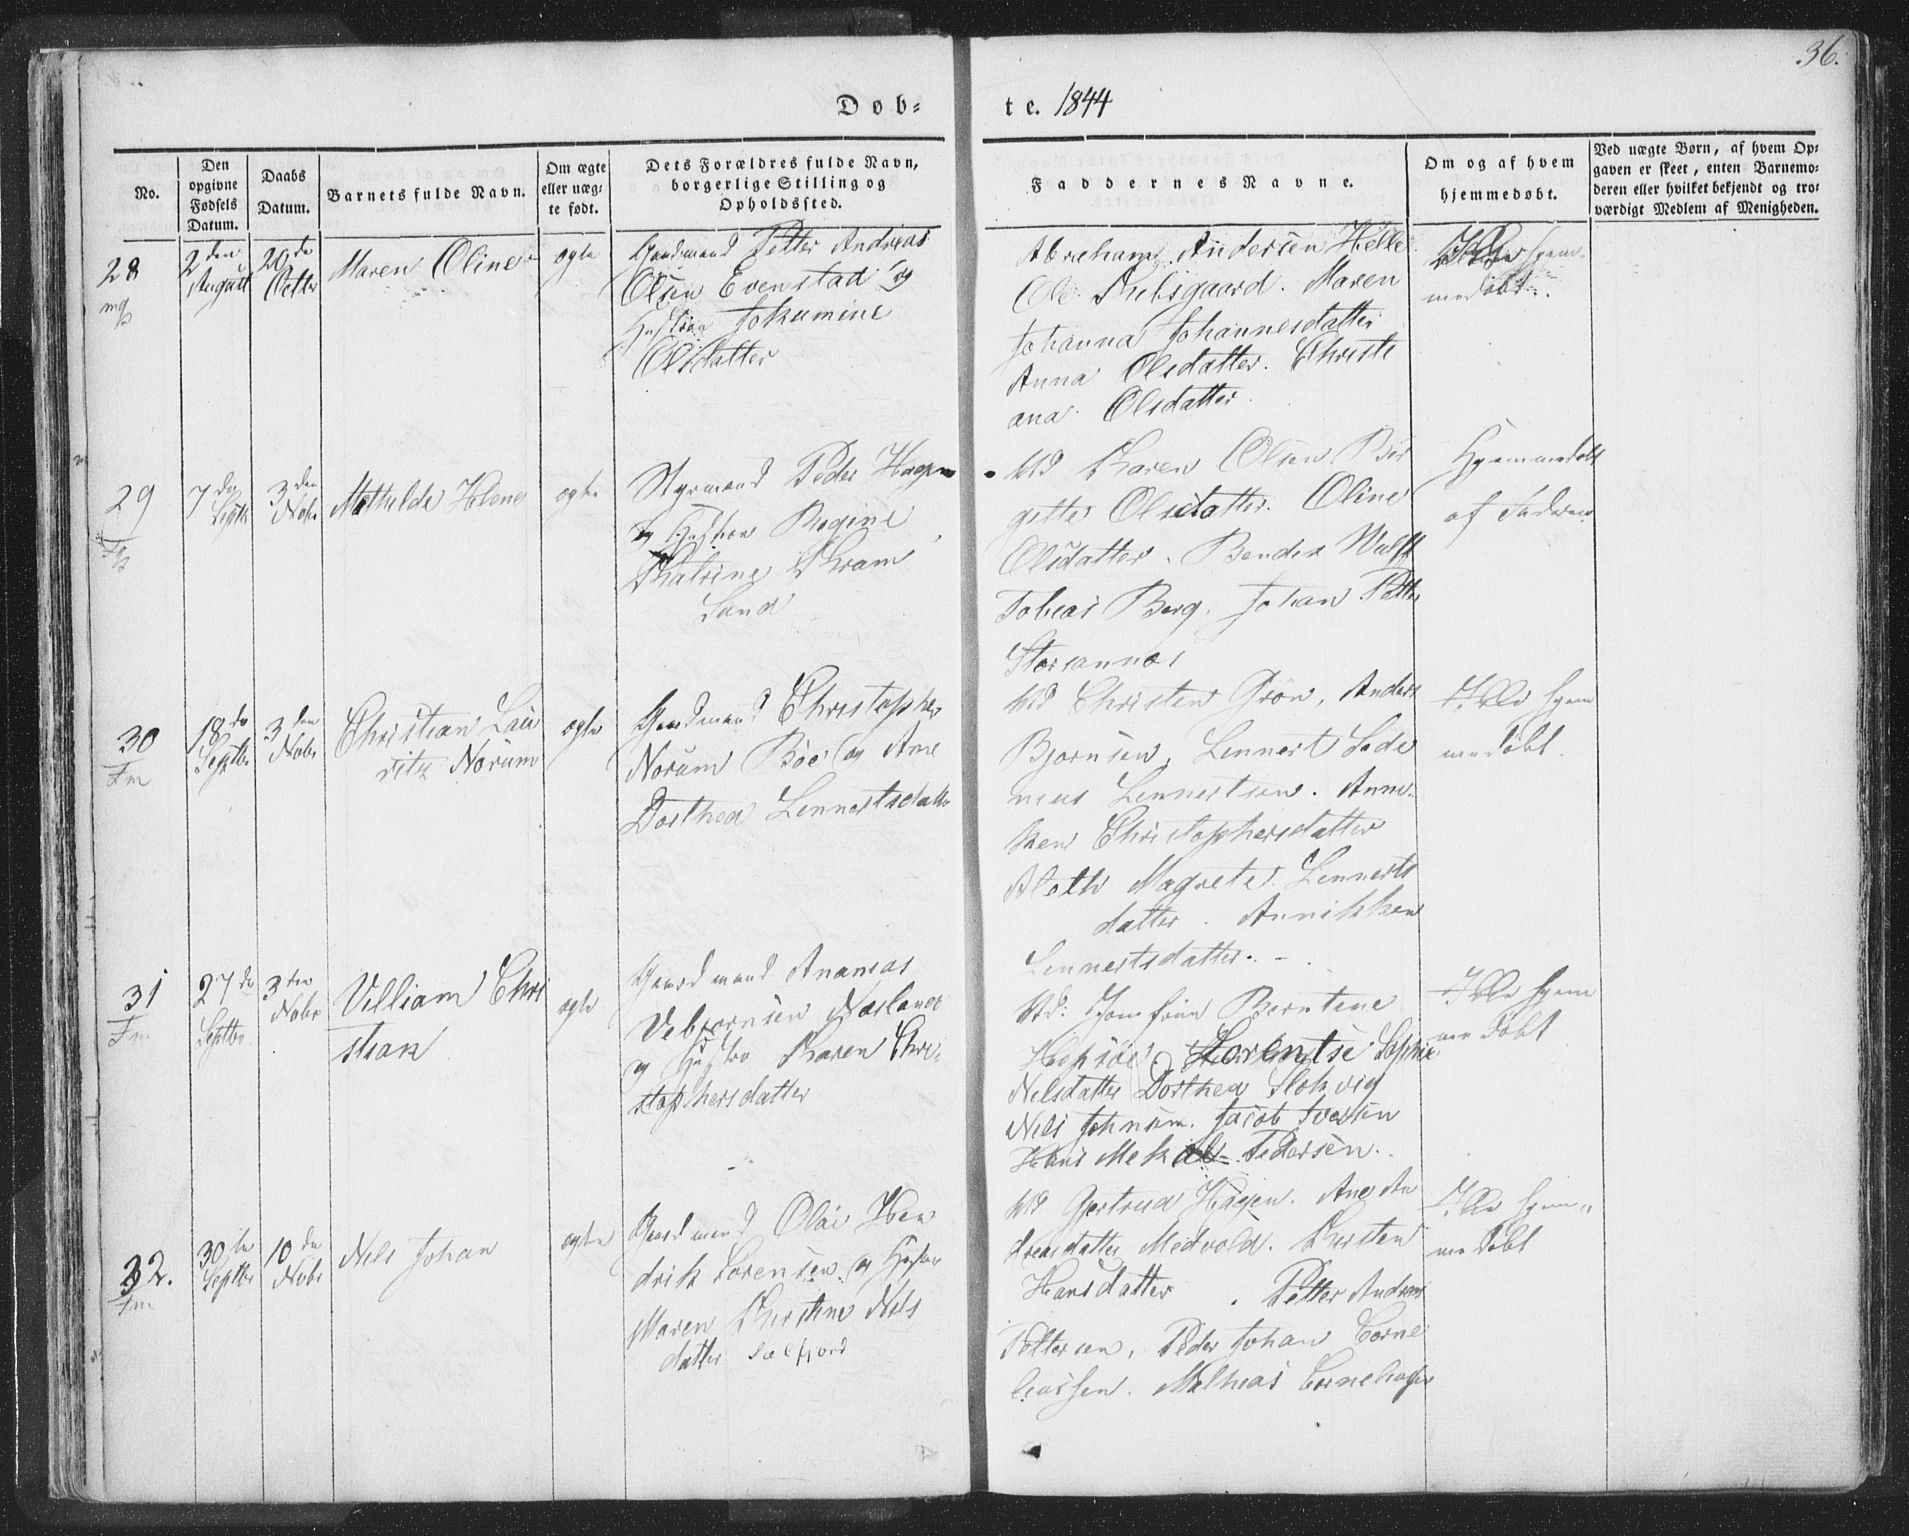 36.
Døb-
te. 1844
No.
Den opgivne Fødsels Datum.
Daabs Datum.
Barnets fulde Navn.
Om ægte eller uægte født.
Dets Forældres fulde Navn, borgerlige Stilling og Opholdssted.
Faddernes Navne.
Om og af hvem hjemmedøbt.
Ved uægte Børn, af hvem Opgaven er skeet, enten Barnemoderen eller hvilket bekjendt og troværdigt Medlem af Menigheden.
28
2den August
20de Octbr
Maren Oline
ægte
Gaardmand Petter Andreas
Olsen Evenstad og
Hustrue Jokumine
Olsdatter
Abraham Andersen Helle
Ole. Maren
Johanna Johannesdatter
Anna Olsdatter. Christi
ana Olsdatter.
Ikke hjem-
medøbt.
29
7de Septbr
3den Nobr
Mathilde Helene
ægte
Styrmand Peder Hagen
og Hustrue Regine
Katrine Kram
Sand
Md Karen Olsen, Bir
gitte Olsdatter. Oline
Olsdatter. Bendix Wulff
Tobias Berg. Johan Petter
Storsannes
Hjemmedøbt
af Faderen
30
Fm
18de Septbr
3den Nobr
Christian Lau
ritz Norum
ægte
Gaardmand Christopher
Norum Böe og Ane
Dorthea Lennertsdatter
Md Christen Grön, Anders
Bjørnsen, Lennert Sade
nius Lennertsen. Anne-
ken Christophersdatter
Aleth Magrete Lennerts
datter. Annikken
Lennertsdatter. -
Ikke hjem
medøbt.
31
Fm
27de Septbr
3den Nobr
Villiam Chri
stian
ægte
Gaardmand Ananias
Vebjørnsen
og Hustru Karen Chri-
stophersdatter
Md: Jomfrue Berntine
Hopsöe, Lorentse Sophie
Nelsdatter Dorthea Slokvig
Nils Johnsen. Jacob Iversen
Hans Mekal Pedersen.
Ikke hjem
me døbt
32.
Fm
30te Septbr
10de Nobr
Nils Johan
ægte
Gaardmand Olai Hen
drik Sørensen og Hustru
Maren Kirstine Nils
datter Sælfjord
Md Gjertrud Hagen. Ane An
dreasdatter Medvold. Kirsten
Hansdatter. Petter Andreas
Pettersen, Peder Johan Corne
liassen. Mathias Corneliassen
Ikke hjem-
me døbt